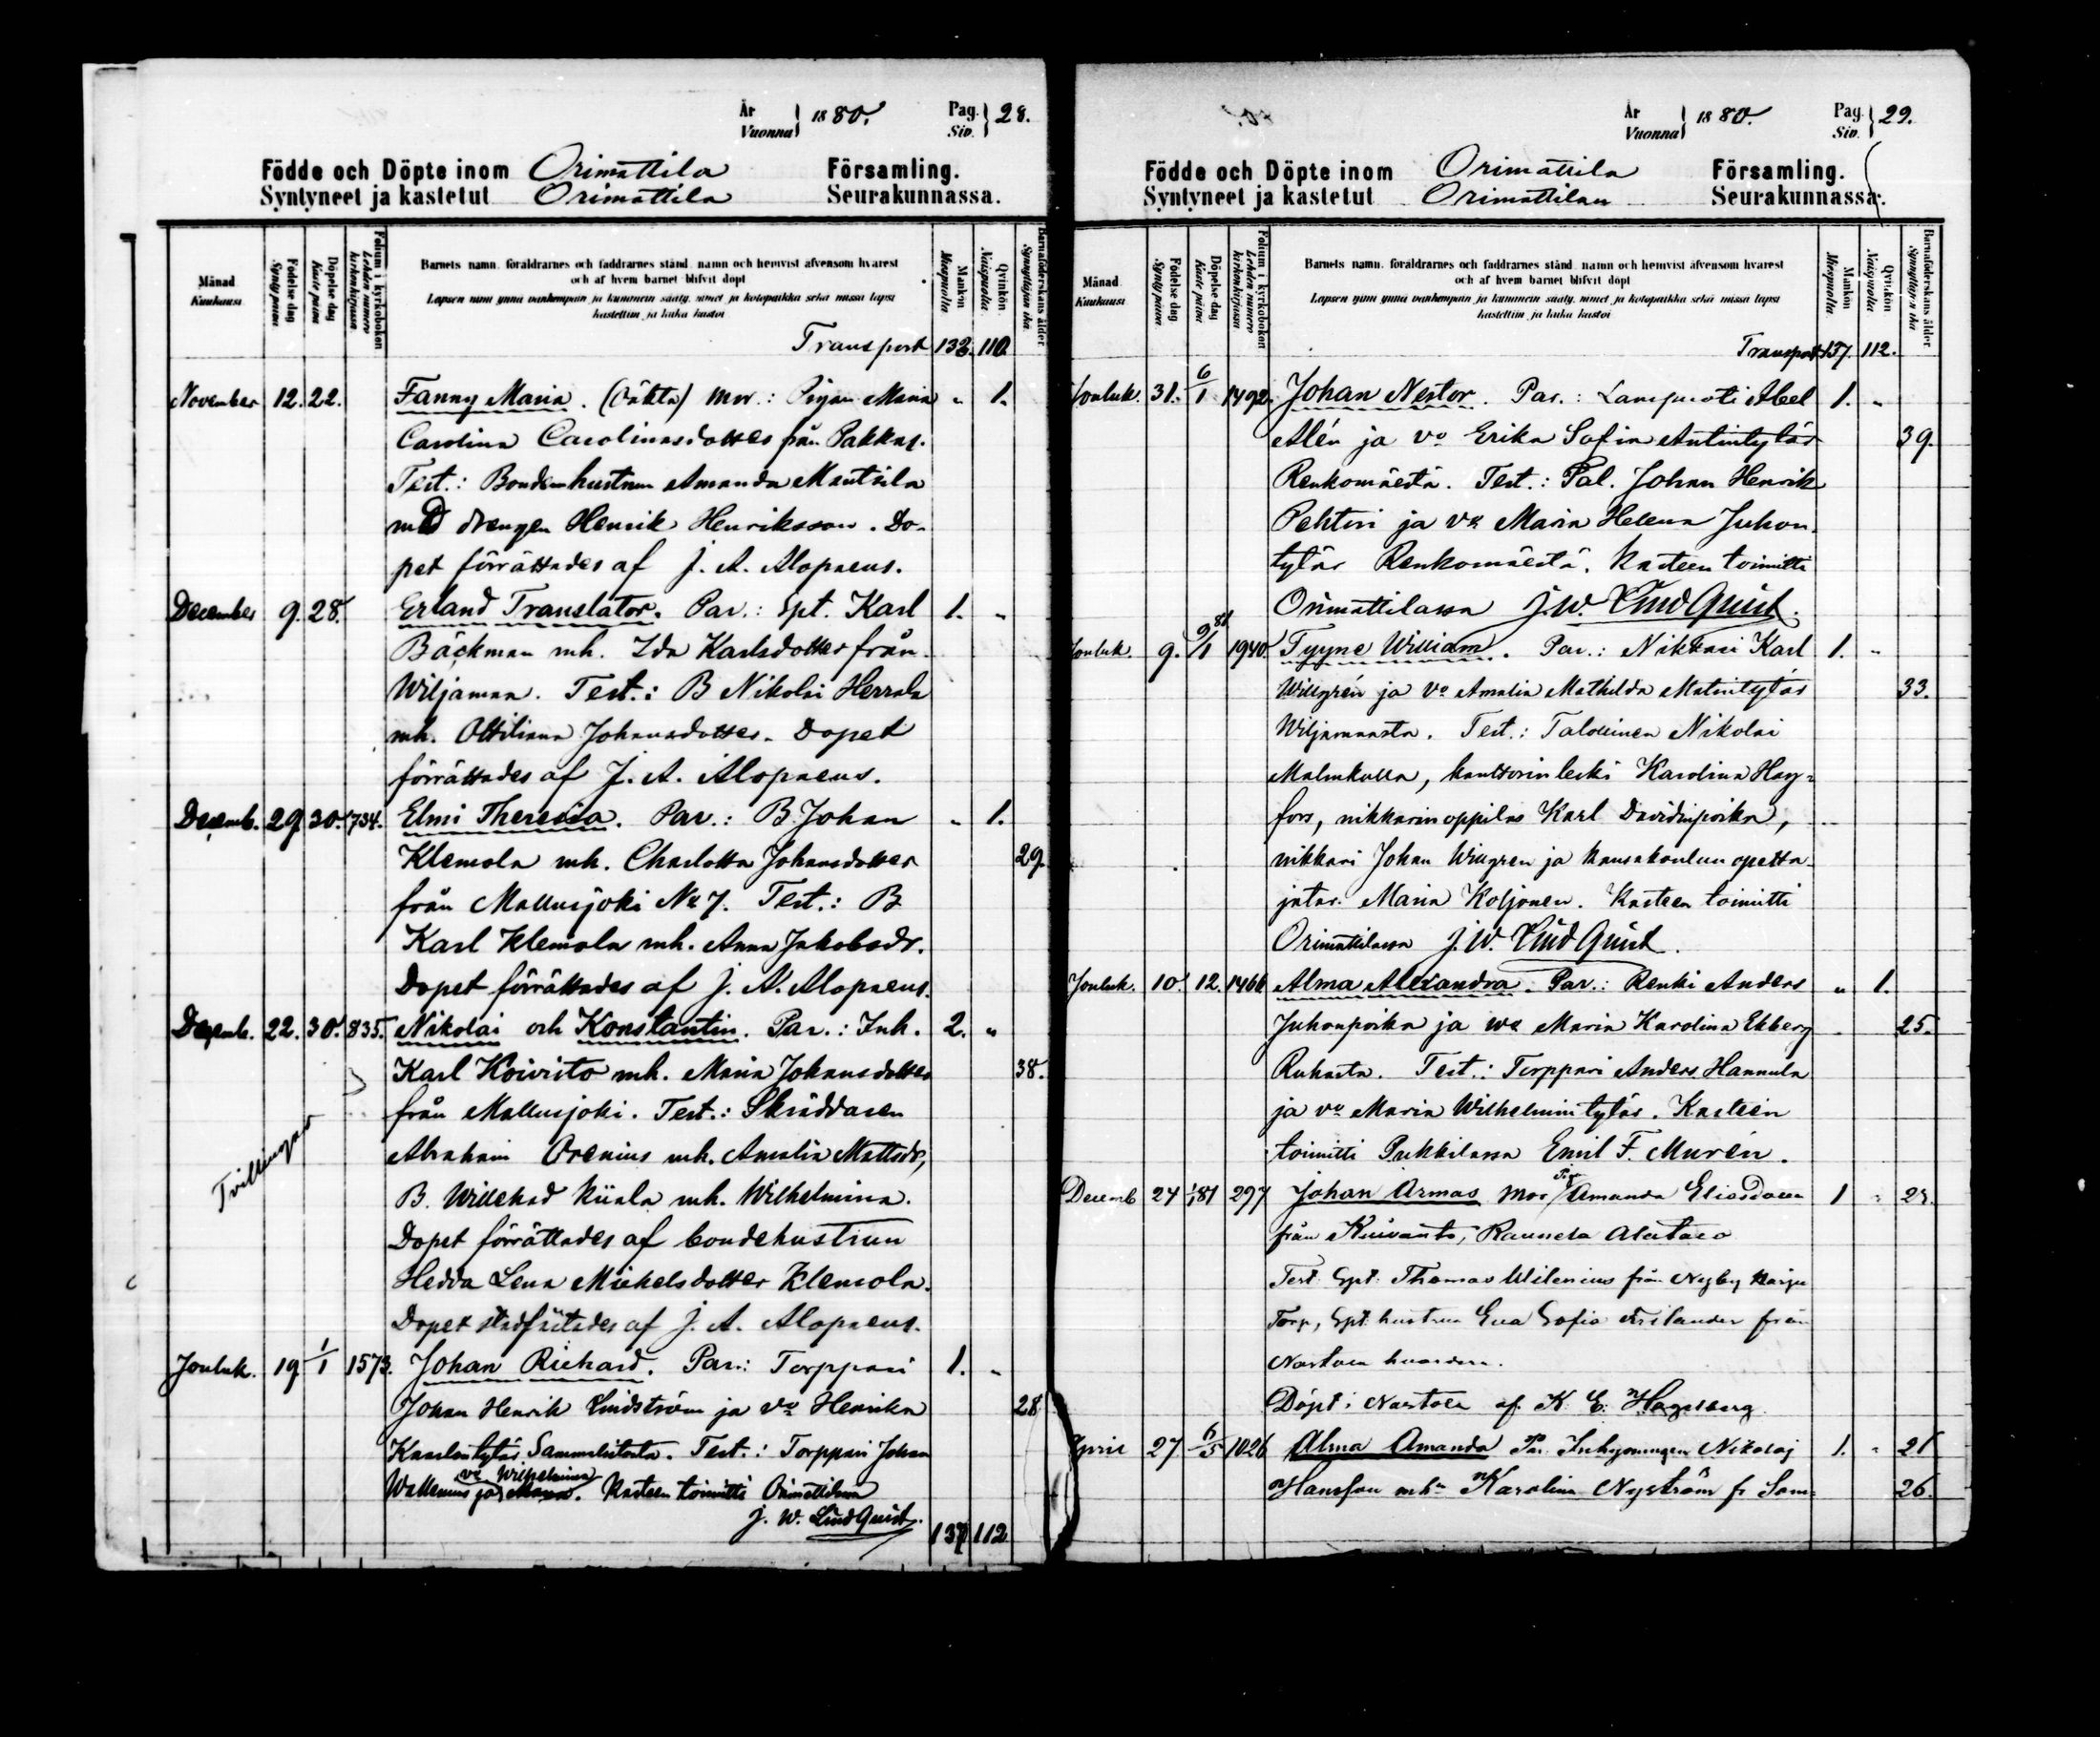 År
Vuonna } 1880.
Pag.
Siv. } 28.
Födde och Döpte inom Orimattila Församling.
Syntyneet ja kastetut Orimattila Seurakunnassa.
Månad
Kuukausi
Födelse dag
Syntypäivä
Döpelse dag
Kastepäivä
Folium i kyrkoboken
Lehden numero kirkonkirjassa
Barnets namn, föräldrarnes och faddrarnes stånd, namn och hemvist äfvensom hvarest
och af hvem barnet blifvit döpt
Lapsen nimi ynnä vanhempain ja kummein sääty, nimet ja kotopaikka sekä missä lapsi
kastettiin ja kuka kastoi
Mankön
Miespuolia
Qvinkön
Naispuolia
Barnaföderskans ålder
Synnyttäjän ikä
Transport 132. 110.
November 12. 22. Fanny Maria. (Oäkta) Mor: Pigan Maria „ 1.
Carolina Carolinasdotter från Pakkas.
Test.: Bondenhustrun Amanda Mantsila
med drengen Henrik Henriksson. Do-
pet förrättades af J. A. Alopaeus.
December 9. 28. Erland Translator. Par.: Spt. Karl 1. „
Bäckman mh. Ida Karlsdotter från
Wiljamaa. Test.: B Nikolai Herrala
mh. Ottiliana Johansdotter. Dopet
förrättades af J. A. Alopaeus.
Decemb. 29. 30. 734. Elmi Theresia. Par.: B. Johan „ 1.
Klemola mh. Charlotta Johansdotter 29.
från Mallusjoki No 7. Test.: B
Karl Klemola mh. Anna Jakobsdr.
Dopet förrättades af J. A. Alopaeus.
Decemb. 22. 30. 835. Nikolai och Konstantin. Par.: Inh. 2. „
Karl Koivisto mh. Maria Johansdotter 38.
från Mallusjoki. Test.: Skräddaren
Tvillingar
Abraham Orenius mh. Amalia Mattsdr,
B. Willehad Kiiala mh. Wilhelmina.
Dopet förrättades af bondehustrun
Hedda Lena Michelsdotter Klemola.
Dopet stadfästades af J. A. Alopaeus.
Jouluk. 19. 1/1 1573. Johan Richard. Par.: Torppari 1. „
Johan Henrik Lindström ja vo Henrika 28
Kaarlentytär Sammalistosta. Test.: Torppari Johan
vo Wilhelmina
Wallenius ja Maria. Kasteen toimitti Orimattilassa
J. W. LindQuist.
137 112
År
Vuonna } 1880.
Pag.
Siv. } 29.
Födde och Döpte inom Orimattila Församling.
Syntyneet ja kastetut Orimattilan Seurakunnassa.
Månad
Kuukausi
Födelse dag
Syntypäivä
Döpelse dag
Kastepäivä
Folium i kyrkoboken
Lehden numero kirkonkirjassa
Barnets namn, föräldrarnes och faddrarnes stånd, namn och hemvist äfvensom hvarest
och af hvem barnet blifvit döpt
Lapsen nimi ynnä vanhempain ja kummein sääty, nimet ja kotopaikka sekä missä lapsi
kastettiin ja kuka kastoi
Mankön
Miespuolia
Qvinkön
Naispuolia
Barnaföderskans ålder
Synnyttäjän ikä
Transport 137. 112.
Jouluk. 31. 6/1 1492. Johan Nestor. Par.: Lampuoti Abel 1. „
Alén ja vo Erika Sofia Antintytär 39.
Renkomäestä. Test.: Pal. Johan Henrik
Pehtori ja vo Maria Helena Juhon-
tytär Renkomäestä. Kasteen toimitti
Orimattilassa J. W. LindQuist.
Jouluk. 9. 9/1 81 1940. Tyyne William. Par.: Nikkari Karl 1. „
Willgrén ja vo Amalia Mathilda Matintytär 33.
Wiljamaasta. Test.: Talollinen Nikolai
Malmkulla, kanttorin leski Karolina Hag-
fors, nikkarin oppilas Karl Davidinpoika,
nikkari Johan Willgren ja kansakoulun opetta-
jatar Maria Koljonen. Kasteen toimitti
Orimattilassa J. W. LindQuist.
Jouluk. 10. 12. 1466 Alma Alexandra. Par.: Renki Anders „ 1.
Juhonpoika ja wo Maria Karolina Ekberg 25.
Ruhasta. Test.: Torppari Anders Hannula
ja vo Maria Wilhelmintytär. Kasteen
toimitti Pukkilassa Emil F. Murén.
Decemb 24 1/1 81 297 Johan Armas Mor Pig. Amanda Eliasdotter 1 „
från Kuivanto, Raunela Alastaro
Test. Spt. Thomas Wilenius från Nyby
Torp, Spt. hustrun Eva Sofia från
Nastola
Döpt i Nastola af K. E. Hagelberg.
April 27. 6/5 1026 Alma Amanda Par. Inhysningen Nikolaj 1. „ 21
Hansson mhu Karolina Nyström fr Sam= 26.